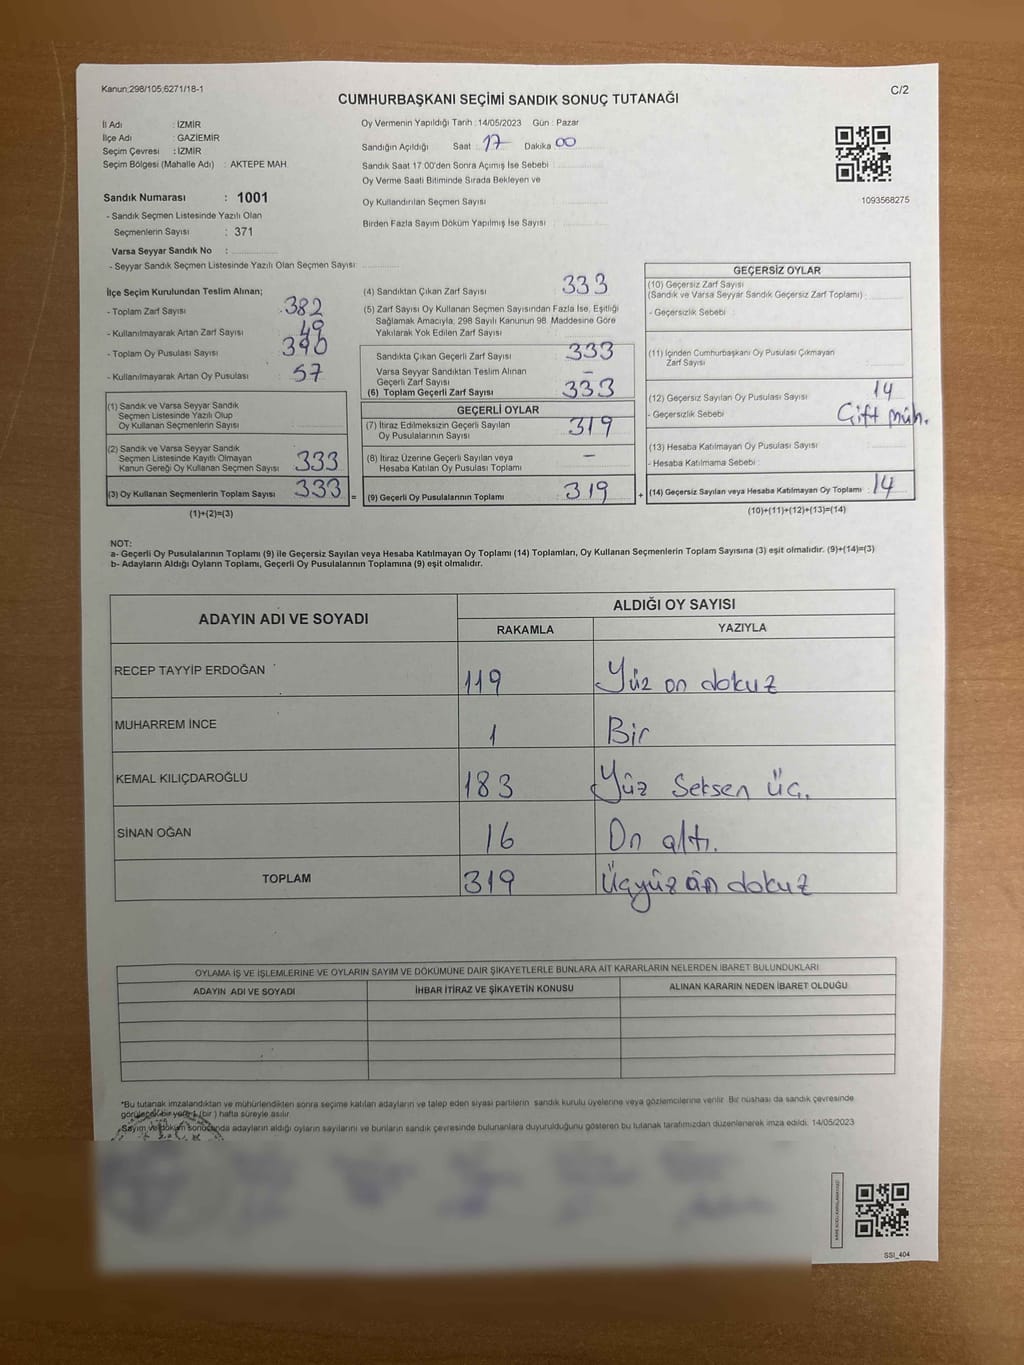 Kanun;298/105;6271/18-1
C/2
CUMHURBAŞKANI SEÇİMİ SANDIK SONUÇ TUTANAĞI
İl Adı : İZMİR
İlçe Adı : GAZİEMİR
Seçim Çevresi : İZMİR
Seçim Bölgesi (Mahalle Adı) : AKTEPE MAH.
Sandık Numarası : 1001
- Sandık Seçmen Listesinde Yazılı Olan
Seçmenlerin Sayısı : 371
Varsa Seyyar Sandık No :
- Seyyar Sandık Seçmen Listesinde Yazılı Olan Seçmen Sayısı:
Oy Vermenin Yapıldığı Tarih : 14/05/2023 Gün : Pazar
Sandığın Açıldığı Saat : 17 Dakika 00
Sandık Saat 17:00'den Sonra Açımış İse Sebebi :
Oy Verme Saati Bitiminde Sırada Bekleyen ve
Oy Kullandırılan Seçmen Sayısı
Birden Fazla Sayım Döküm Yapılmış İse Sayısı :
1093568275
İlçe Seçim Kurulundan Teslim Alınan;
- Toplam Zarf Sayısı : 382
- Kullanılmayarak Artan Zarf Sayısı : 49
- Toplam Oy Pusulası Sayısı : 390
- Kullanılmayarak Artan Oy Pusulası : 57
(1) Sandık ve Varsa Seyyar Sandık
Seçmen Listesinde Yazılı Olup
Oy Kullanan Seçmenlerin Sayısı :
(2) Sandık ve Varsa Seyyar Sandık
Seçmen Listesinde Kayıtlı Olmayan
Kanun Gereği Oy Kullanan Seçmen Sayısı : 333
(3) Oy Kullanan Seçmenlerin Toplam Sayısı : 333 =
(1)+(2)=(3)
(4) Sandıktan Çıkan Zarf Sayısı : 333
(5) Zarf Sayısı Oy Kullanan Seçmen Sayısından Fazla İse, Eşitliği
Sağlamak Amacıyla, 298 Sayılı Kanunun 98. Maddesine Göre
Yakılarak Yok Edilen Zarf Sayısı :
Sandıkta Çıkan Geçerli Zarf Sayısı : 333
Varsa Seyyar Sandıktan Teslim Alınan
Geçerli Zarf Sayısı : -
(6) Toplam Geçerli Zarf Sayısı : 333
GEÇERLİ OYLAR
(7) İtiraz Edilmeksizin Geçerli Sayılan
Oy Pusulalarının Sayısı : 319
(8) İtiraz Üzerine Geçerli Sayılan veya
Hesaba Katılan Oy Pusulası Toplamı : -
(9) Geçerli Oy Pusulalarının Toplamı : 319 +
GEÇERSİZ OYLAR
(10) Geçersiz Zarf Sayısı
(Sandık ve Varsa Seyyar Sandık Geçersiz Zarf Toplamı) :
- Geçersizlik Sebebi :
(11) İçinden Cumhurbaşkanı Oy Pusulası Çıkmayan
Zarf Sayısı :
(12) Geçersiz Sayılan Oy Pusulası Sayısı : 14
- Geçersizlik Sebebi : Çift müh.
(13) Hesaba Katılmayan Oy Pusulası Sayısı :
- Hesaba Katılmama Sebebi :
(14) Geçersiz Sayılan veya Hesaba Katılmayan Oy Toplamı : 14
(10)+(11)+(12)+(13)=(14)
NOT:
a- Geçerli Oy Pusulalarının Toplamı (9) ile Geçersiz Sayılan veya Hesaba Katılmayan Oy Toplamı (14) Toplamları, Oy Kullanan Seçmenlerin Toplam Sayısına (3) eşit olmalıdır. (9)+(14)=(3)
b- Adayların Aldığı Oyların Toplamı, Geçerli Oy Pusulalarının Toplamına (9) eşit olmalıdır.
ADAYIN ADI VE SOYADI
ALDIĞI OY SAYISI
RAKAMLA YAZIYLA
RECEP TAYYİP ERDOĞAN 119 Yüz on dokuz
MUHARREM İNCE 1 Bir
KEMAL KILIÇDAROĞLU 183 Yüz Seksen üç.
SİNAN OĞAN 16 On altı.
TOPLAM 319 Üçyüz on dokuz
OYLAMA İŞ VE İŞLEMLERİNE VE OYLARIN SAYIM VE DÖKÜMÜNE DAİR ŞİKAYETLERLE BUNLARA AİT KARARLARIN NELERDEN İBARET BULUNDUKLARI
ADAYIN ADI VE SOYADI İHBAR İTİRAZ VE ŞİKAYETİN KONUSU ALINAN KARARIN NEDEN İBARET OLDUĞU
*Bu tutanak imzalandıktan ve mühürlendikten sonra seçime katılan adayların ve talep eden siyasi partilerin sandık kurulu üyelerine veya gözlemcilerine verilir. Bir nüshası da sandık çevresinde
görülecek bir yere 1 (bir ) hafta süreyle asılır.
Sayım ve döküm sonucunda adayların aldığı oyların sayılarını ve bunların sandık çevresinde bulunanlara duyurulduğunu gösteren bu tutanak tarafımızdan düzenlenerek imza edildi. 14/05/2023
SSİ_404